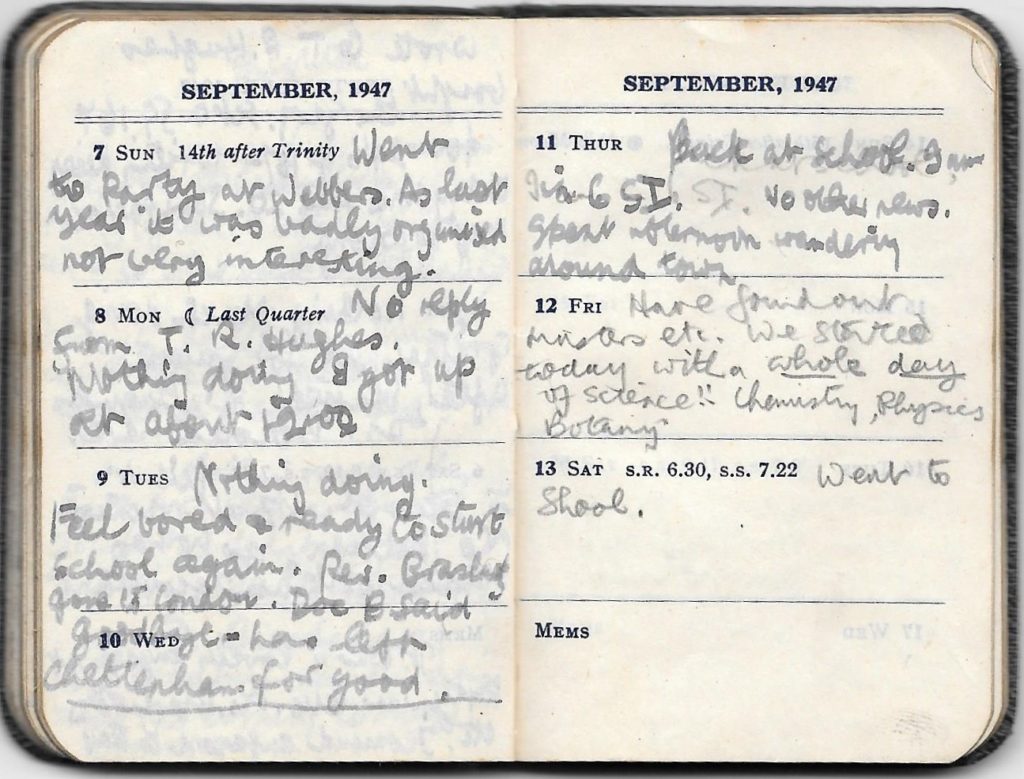 SEPTEMBER, 1947
7 SUN 14th after Trinity Went
to Party at Webbers. As last
year it was badly organised
not very interesting.
8 MON ☾ Last Quarter No reply
from T. R. Hughes.
Nothing doing I got up
at about 12.00
9 TUES Nothing doing.
Feel bored & ready to start
school again. Rev.
gone to London. Doc B said
goodbye - has left
10 WED
Cheltenham for good.
SEPTEMBER, 1947
11 THUR Back at School. I am
in 6 SI. SI. No other news.
Spent afternoon wandering
around town
12 FRI Have found out
masters etc. We started
today with a whole day
of science!! Chemistry, Physics
Botany
13 SAT S.R. 6.30, S.S. 7.22 Went to
Shool.
MEMS